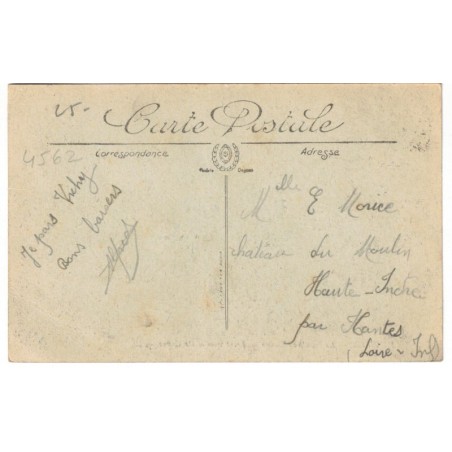 25-
Carte Postale
4562
Correspondance
Adresse
Je pars Vichy
Bons baisers
Alfred
Mlle E Morice
château du Moulin
Haute-Indre
par Nantes
Loire-Inf